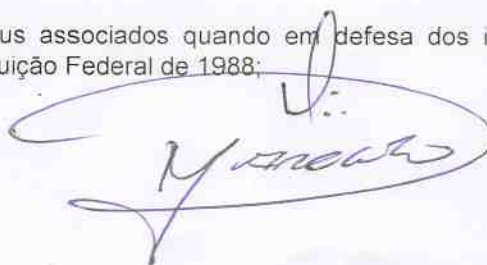 us associados quando em defesa dos i
uição Federal de 1988;